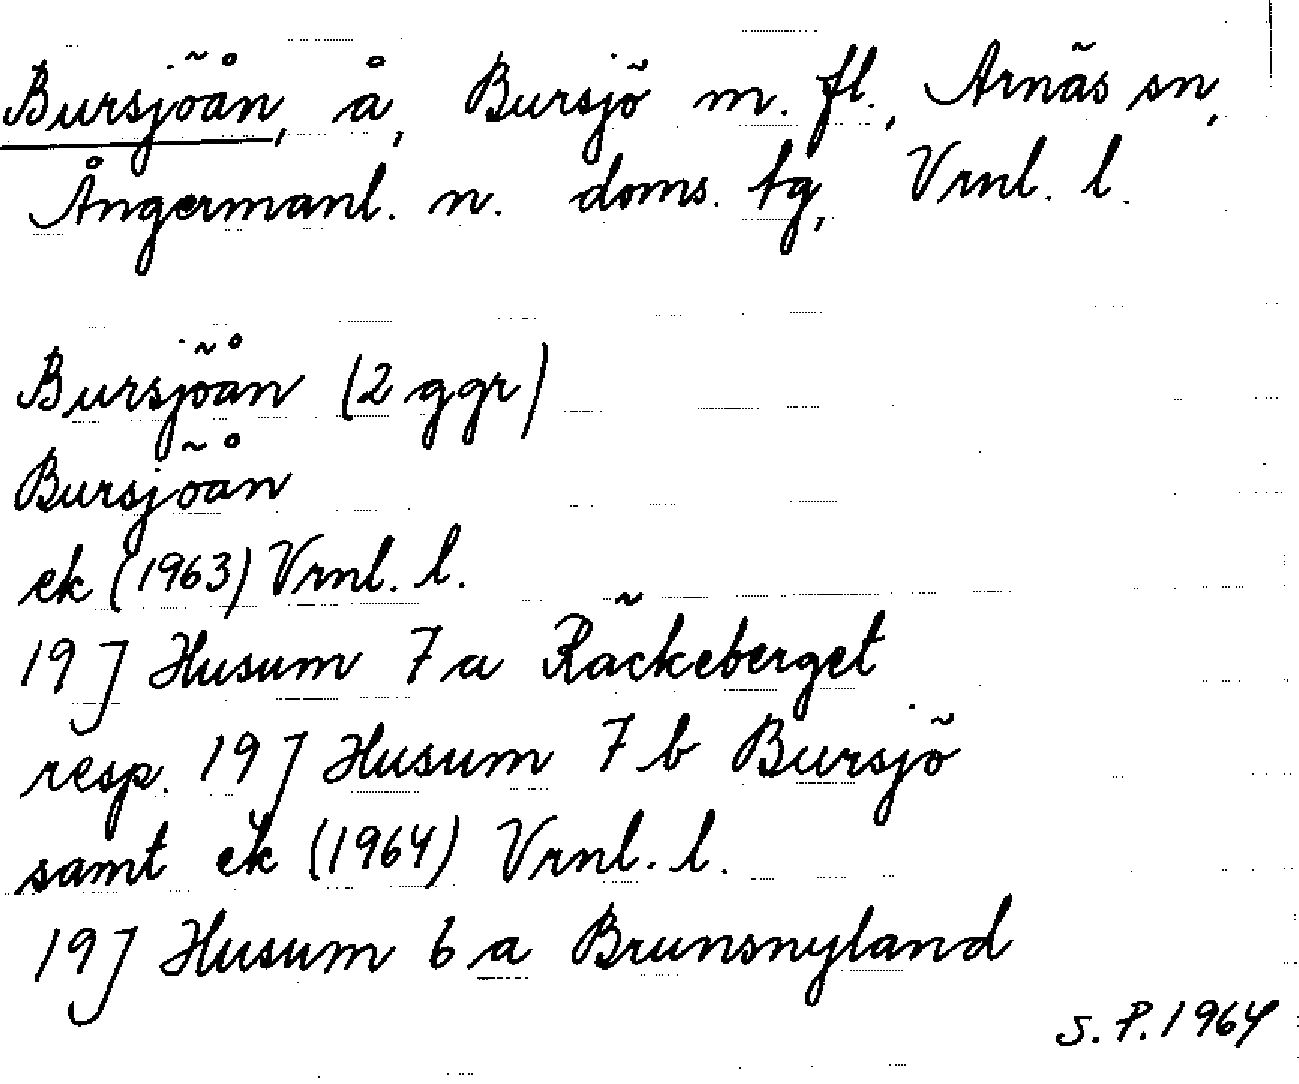 Bursjöån, å, Bursjö m. fl., Arnäs sn,
Ångermanl. n. doms. tg, Vrnl. l.
Bursjöån (2 ggr)
Bursjöån
ek (1963) Vrnl. l.
19 J Husum 7 a Räckeberget
resp. 19 J Husum 7 b Bursjö
samt ek (1964) Vrnl. l.
19 J Husum 6 a Brunsnyland
S. P. 1964